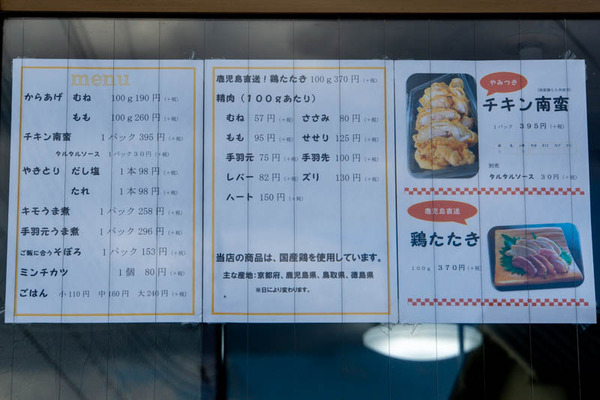 menu
からあげ むね 100g190円 (+税)
もも 100g260円 (+税)
チキン南蛮 1パック395円 (+税)
タルタルソース 1パック30円 (+税)
やきとり だし塩 1本98円 (+税)
たれ 1本98円 (+税)
キモうま煮 1パック258円 (+税)
手羽元うま煮 1パック296円 (+税)
ご飯に合うそぼろ 1パック153円 (+税)
ミンチカツ 1個 80円 (+税)
ごはん 小110円 中160円 大240円 (+税)
鹿児島直送!鶏たたき 100g370円 (+税)
精肉(100gあたり)
むね 57円 (+税) ささみ 80円 (+税)
もも 95円 (+税) せせり 125円 (+税)
手羽元 75円 (+税) 手羽先 100円 (+税)
レバー 82円 (+税) ズリ 130円 (+税)
ハート 150円 (+税)
当店の商品は、国産鶏を使用しています。
主な産地:京都府、鹿児島県、鳥取県、徳島県
※日により変わります。
やみつき
チキン南蛮
1パック 395円 (+税)
別売
タルタルソース 30円 (+税)
鹿児島直送
鶏たたき
100g 370円 (+税)